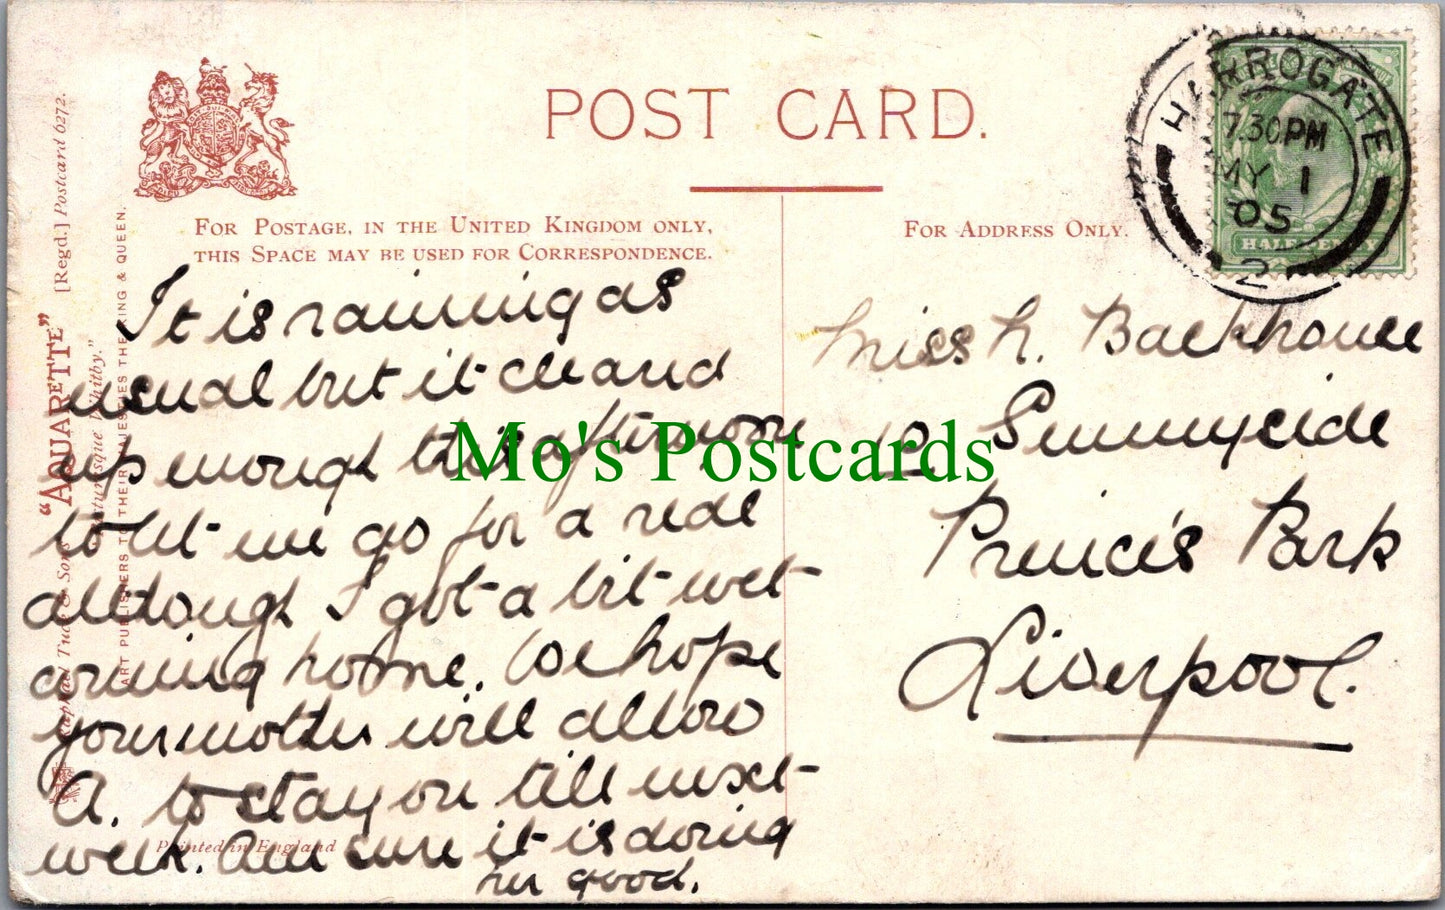 POST CARD.
FOR POSTAGE, IN THE UNITED KINGDOM ONLY,
THIS SPACE MAY BE USED FOR CORRESPONDENCE.
FOR ADDRESS ONLY.
HARROGATE
7.30PM
MY 1
05
2
HALFPENNY
"AQUARETTE" [Regd.] Postcard 6272.
"Picturesque Whitby."
Raphael Tuck & Sons
ART PUBLISHERS TO THEIR MAJESTIES THE KING & QUEEN.
Printed in England
It is raining as
usual but it cleared
up enough this afternoon
to let me go for a ride
although I got a bit wet
coming home. We hope
your mother will allow
A. to stay on till next
week. Am sure it is doing
her good.
Miss N. Backhouse
10 Sunnyside
Prince's Park
Liverpool.
Mo's Postcards